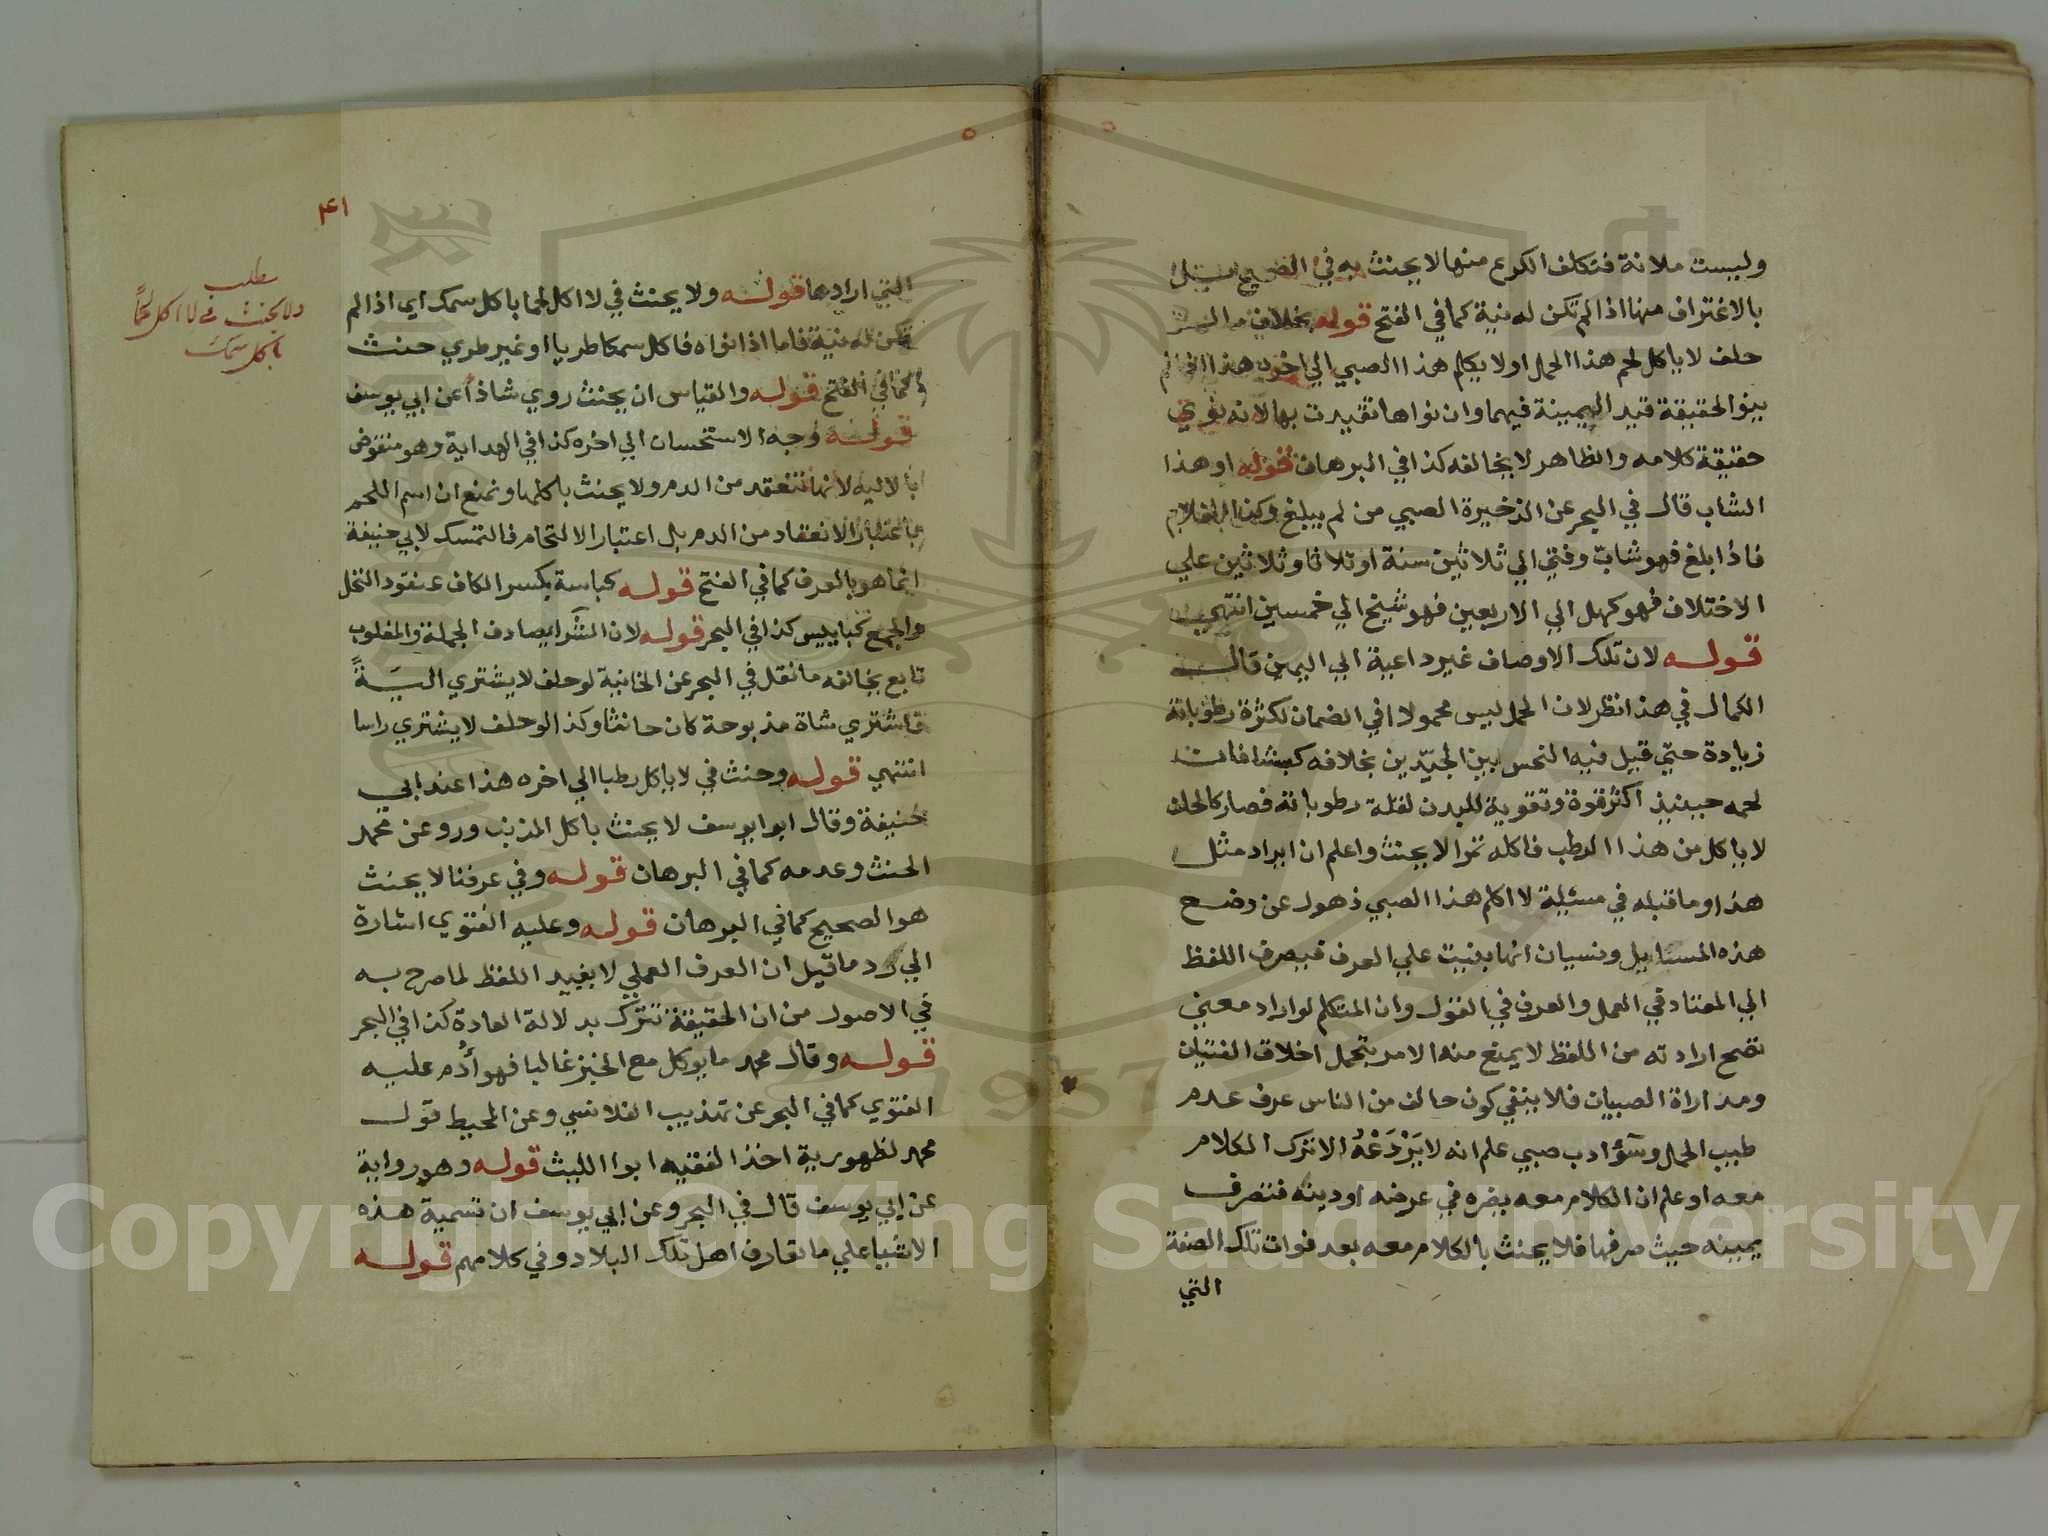 وليست ملانة فتكلف الكرع منها لا يحنث به في الصحيح
بالاغتراف منها اذا لم تكن له نية كما في الفتح قوله بخلاف
حلف لا ياكل لحم هذا الحمل او لا يكلم هذا الصبي الي اخره هذا اذا لم
ينو الحقيقة قيد اليمينة فيهما وان نواها تقيدت بها لانه نوي
حقيقة كلامه والظاهر لا يخالفه كذا في البرهان قوله او هذا
الشاب قال في البحر عن الذخيرة الصبي من لم يبلغ وكذا الغلام
فاذا بلغ فهو شاب وفتي الي ثلاثين سنة او ثلاثا وثلاثين علي
الاختلاف فهو كهل الي الاربعين فهو شيخ الي خمسين انتهي
قوله لان تلك الاوصاف غير داعية الي اليمين قال
الكمال في هذا نظر لان الحمل ليس محمولا في الضمان لكثرة رطوباتة
زيادة حتي قيل فيه النحس بين الجيدين بخلافه كبشا فان
لحمه حينيذ اكثر قوة وتقوية للبدن لقلة رطوباتة فصار كالحلف
لا ياكل من هذا الرطب فاكله تمرا لا يحنث واعلم ان ايراد مثل
هذا وما قبله في مسئلة لا اكلم هذا الصبي ذهول عن وضع
هذه المسايل ونسيان انها بنيت علي العرف فيصرف اللفظ
الي المعتاد في العمل والعرف في القول وان المتكلم لو اراد معني
تصح ارادته من اللفظ لا يمنع منه الامر بتحمل اخلاق الفتيان
ومداراة الصبيان فلا ينفي كون حالف من الناس عرف عدم
طيب الحمل وسؤ ادب صبي علم انه لا يَزْدَعْهُ الا ترك الكلام
معه او علم ان الكلام معه يضره في عرضه او دينه فتصرف
يمينه حيث صرفها فلا يحنث بالكلام معه بعد فوات تلك الصفة
التي
٤١
مطلب
ولا يحنث في لا اكل لحماً
باكل سمك
التي ارادها قوله ولا يحنث في لا اكل لحما باكل سمك اي اذا لم
تكن له نية فاما اذا نواه فاكل سمكا طريا او غير طري حنث
كما في الفتح قوله والقياس ان يحنث روي شاذاً عن ابي يوسف
قوله وجه الاستحسان الي اخره كذا في الهداية وهو منقوض
بالاليه لانها تنعقد من الدم ولا يحنث باكلها ونمنع ان اسم اللحم
باعتبار الانعقاد من الدم بل اعتبار الالتحام فالتمسك لابي حنيفة
انما هو بالعرف كما في الفتح قوله كباسة بكسر الكاف عنقود النخل
والجمع كباييس كذا في البحر قوله لان الشرا يصادف الجملة والمغلوب
تابع يخالفه ما نقل في البحر عن الخانية لو حلف لا يشتري اليَةً
فاشتري شاة مذبوحة كان حانثا وكذا لو حلف لا يشتري راسا
انتهي قوله وحنث في لا ياكل رطبا الي اخره هذا عند ابي
حنيفة وقال ابوا يوسف لا يحنث باكل المذنب ورو عن محمد
الحنث وعدمه كما في البرهان قوله وفي عرفنا لا يحنث
هو الصحيح كما في البرهان قوله وعليه الفتوي اشارة
الي رد ما قيل ان العرف العملي لا يفيد اللفظ لما صرح به
في الاصول من ان الحقيقة تترك بدلالة العادة كذا في البحر
قوله وقال محمد ما يوكل مع الخبز غالبا فهو أدُم عليه
الفتوي كما في البحر عن تهذيب القلانسي وعن المحيط قول
محمد لظهورية اخذ الفقيه ابوا الليث قوله وهو رواية
عن ابي يوسف قال في البحر وعن ابي يوسف ان تسمية هذه
الاشيا علي ما تعارف اهل تلك البلاد وفي كلامهم قوله
1957
Copyright © King Saud University